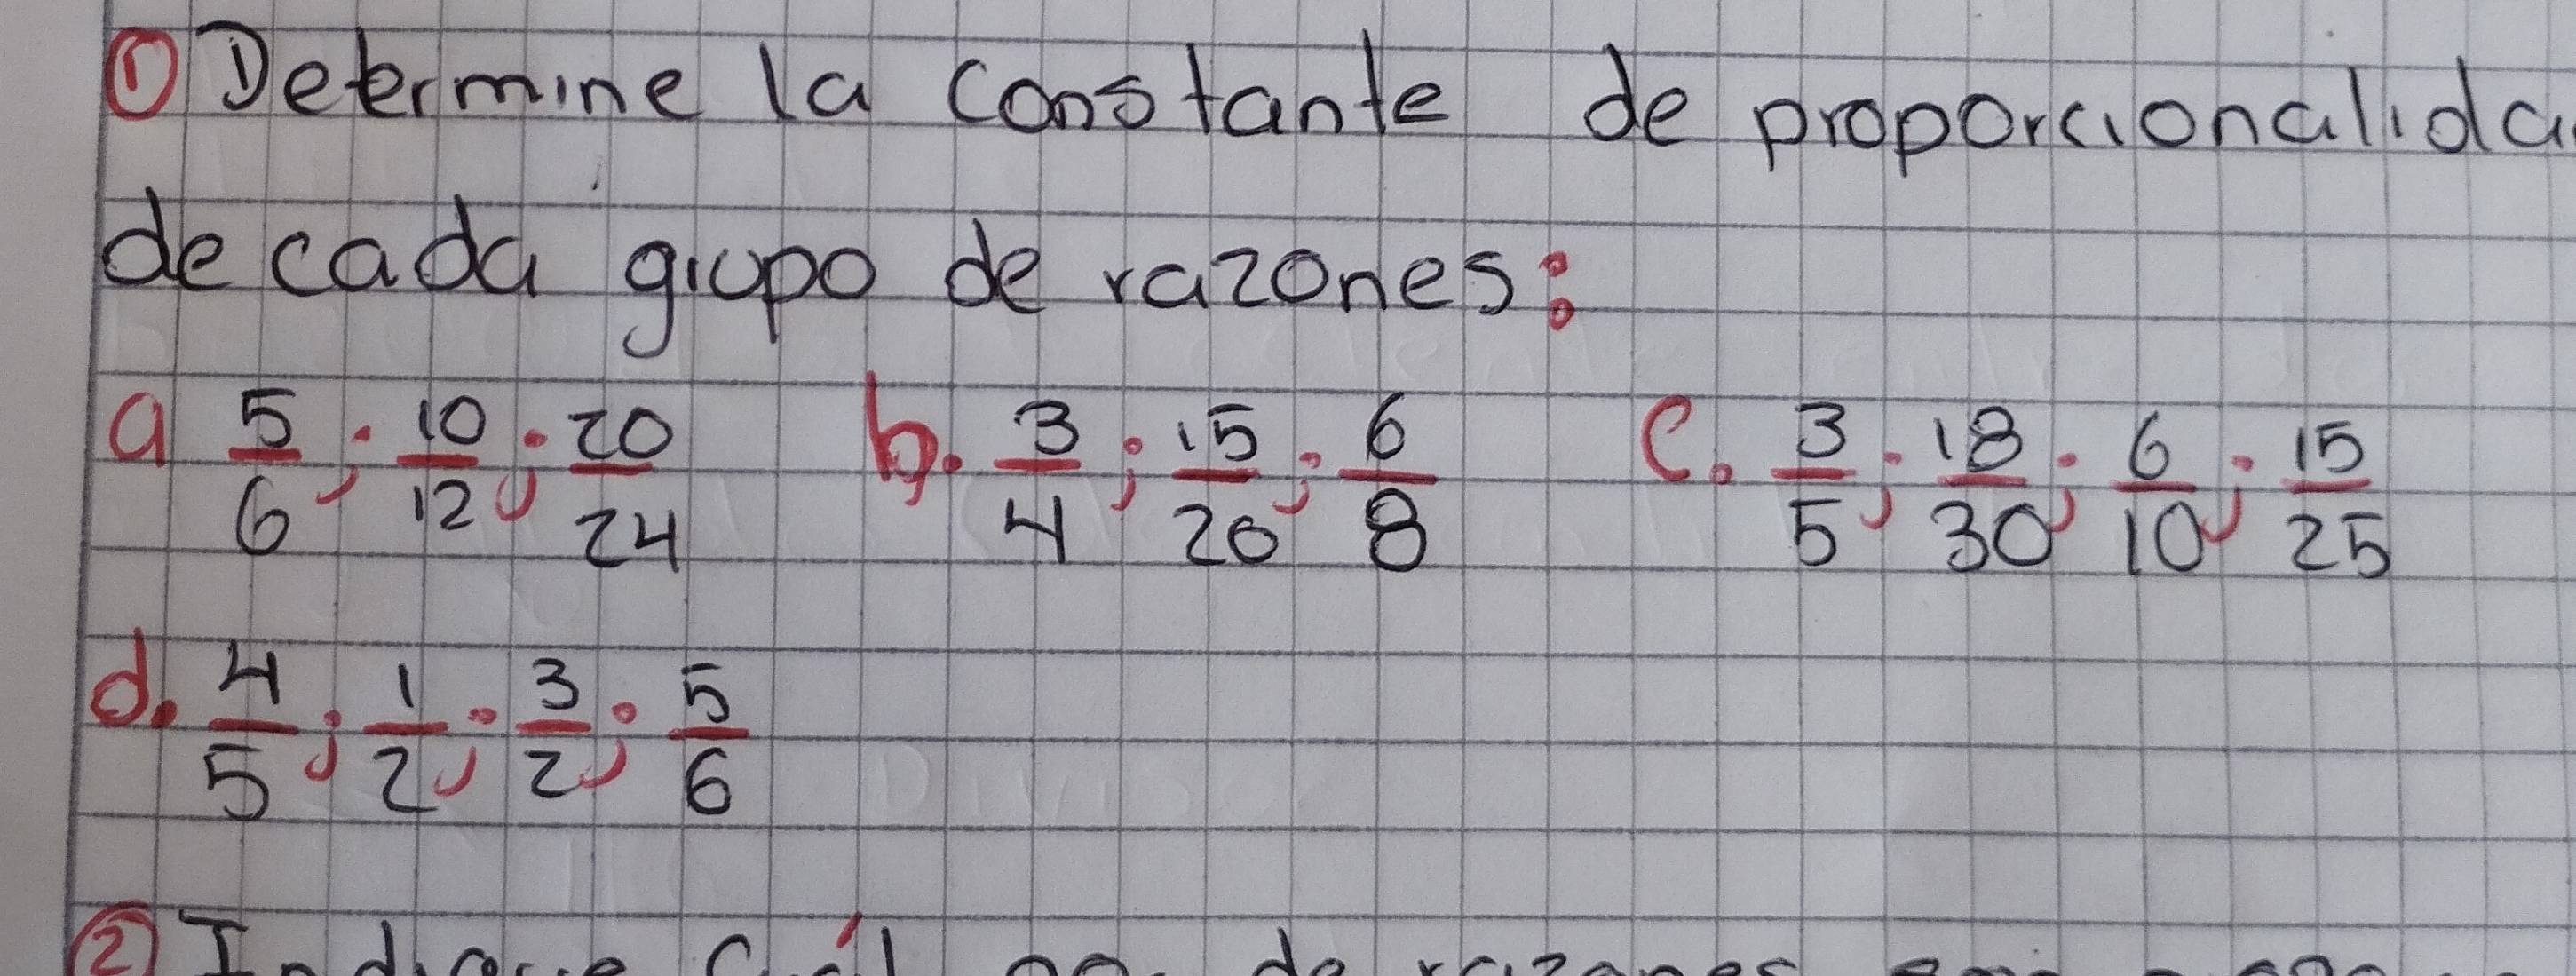 ① Determine la constante de proporcionalida
de cada grupo de razones:
a 5/6 ; 10/12 ; 20/24 b. 3/4 ; 15/20 ; 6/8 c. 3/5 ; 18/30 ; 6/10 ; 15/25
d. 4/5 ; 1/2 ; 3/2 ; 5/6
② Indique cuál de razones